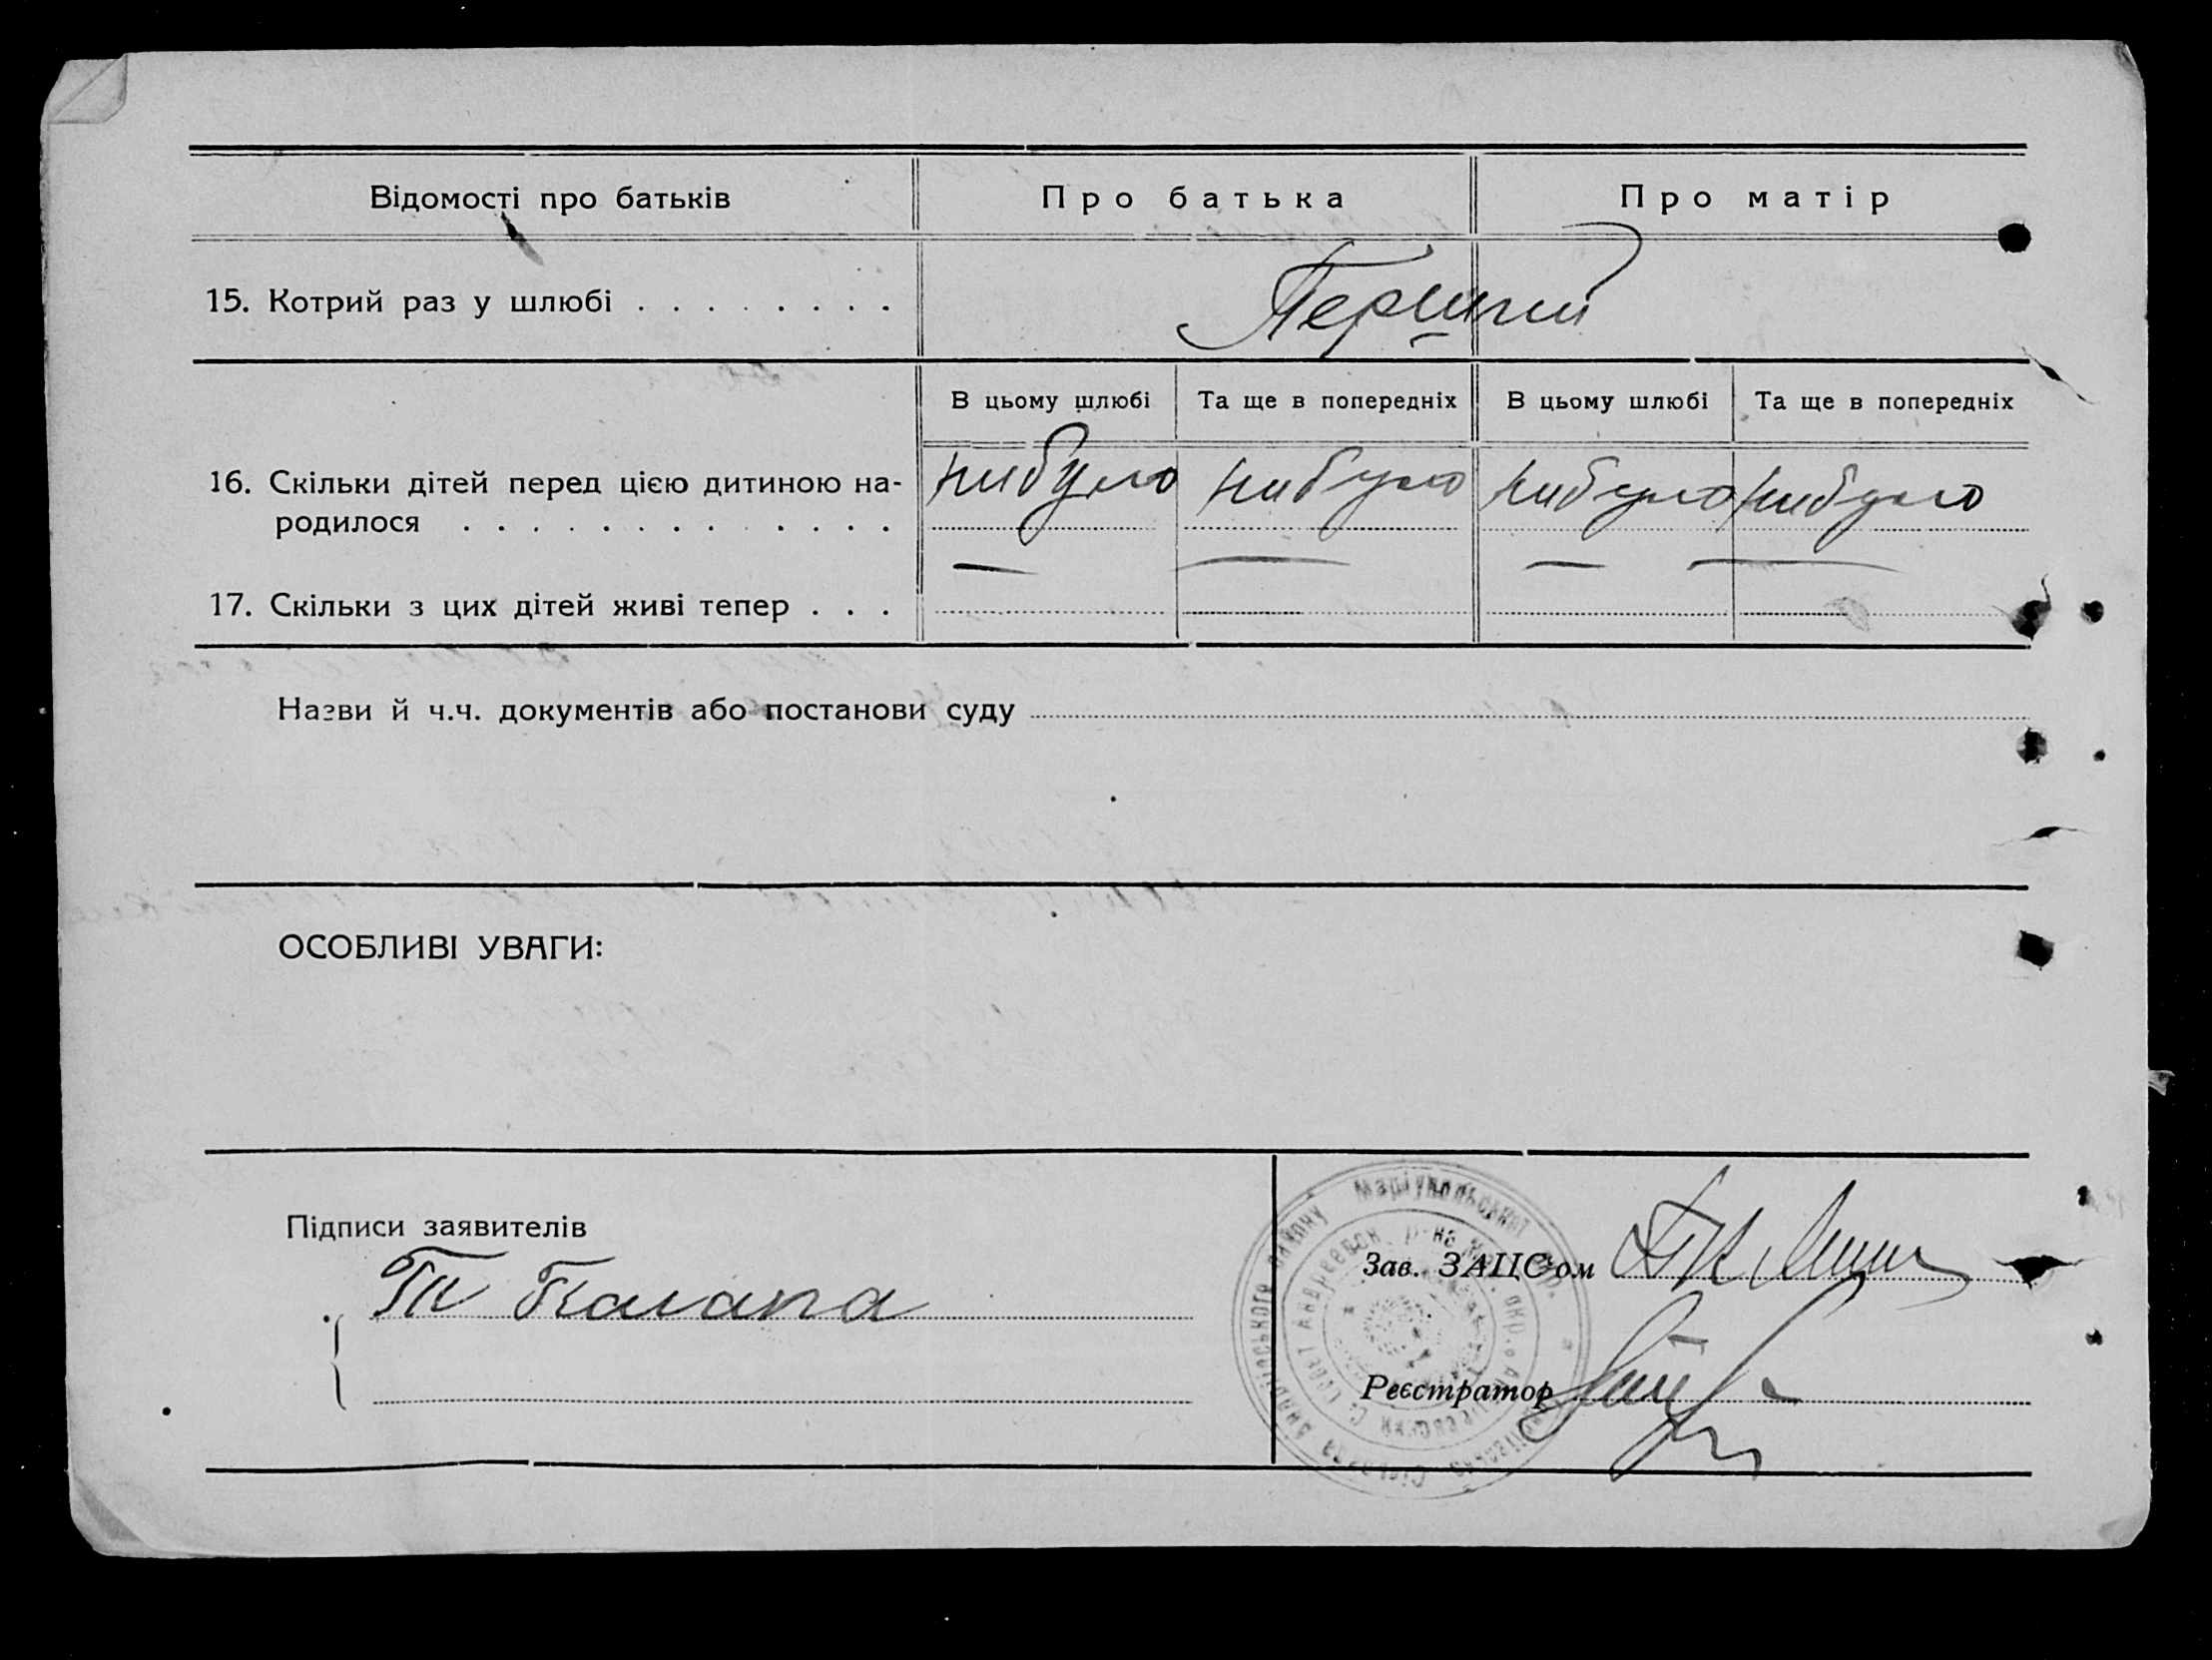 Відомості про батьків
Про батька
Про матір
15. Котрий раз у шлюбі . . . . . . . .
Перший
В цьому шлюбі
Та ще в попередніх
В цьому шлюбі
Та ще в попередніх
16. Скільки дітей перед цією дитиною на-
родилося . . . . . . . . . . . . .
нибуло
нибуло
нибуло
нибуло
—
—
—
—
17. Скільки з цих дітей живі тепер . . .
Назви й ч.ч. документів або постанови суду
ОСОБЛИВІ УВАГИ:
Підписи заявителів
Зав. ЗАЦС'ом
Реєстратор
Маріупольської